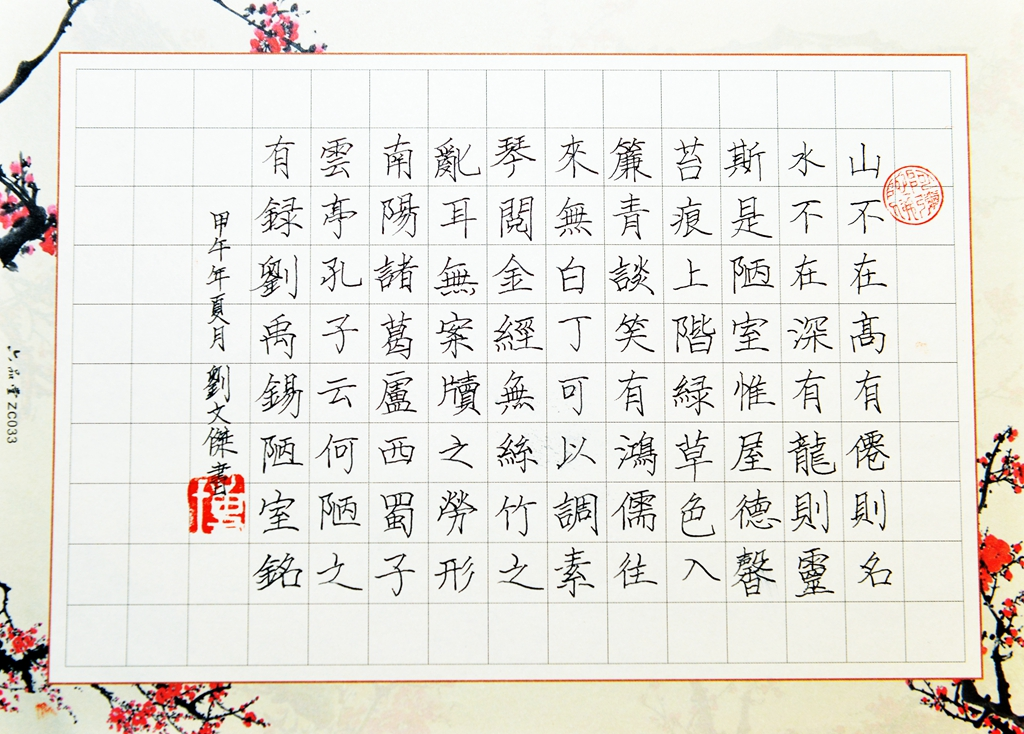 山不在高有僊則名
水不在深有龍則靈
斯是陋室惟屋德馨
苔痕上階緑草色入
簾青談笑有鴻儒往
來無白丁可以調素
琴閲金經無絲竹之
亂耳無案牘之勞形
南陽諸葛盧西蜀子
雲亭孔子云何陋文
有録劉禹錫陋室銘
甲午年夏月 劉文傑書
博
六品堂 ZG033